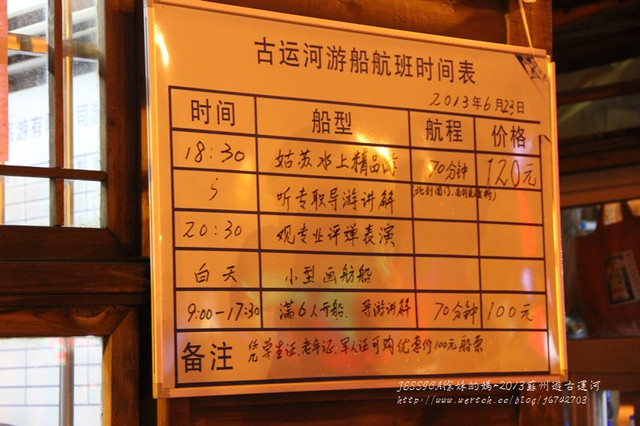 古运河游船航班时间表
2013年6月23日
时间 船型 航程 价格
18:30 姑苏水上精品游 70分钟 120元
听专职导游讲解
20:30 观专业评弹表演
白天 小型画舫船
9:00-17:30 满6人开船、导游讲解 70分钟 100元
备注 凭 学生证、老年证、军人证可购优惠价100元船票
JESSICA傑妹的媽~2013蘇州遊古運河
http://www.wretch.cc/blog/j6742703